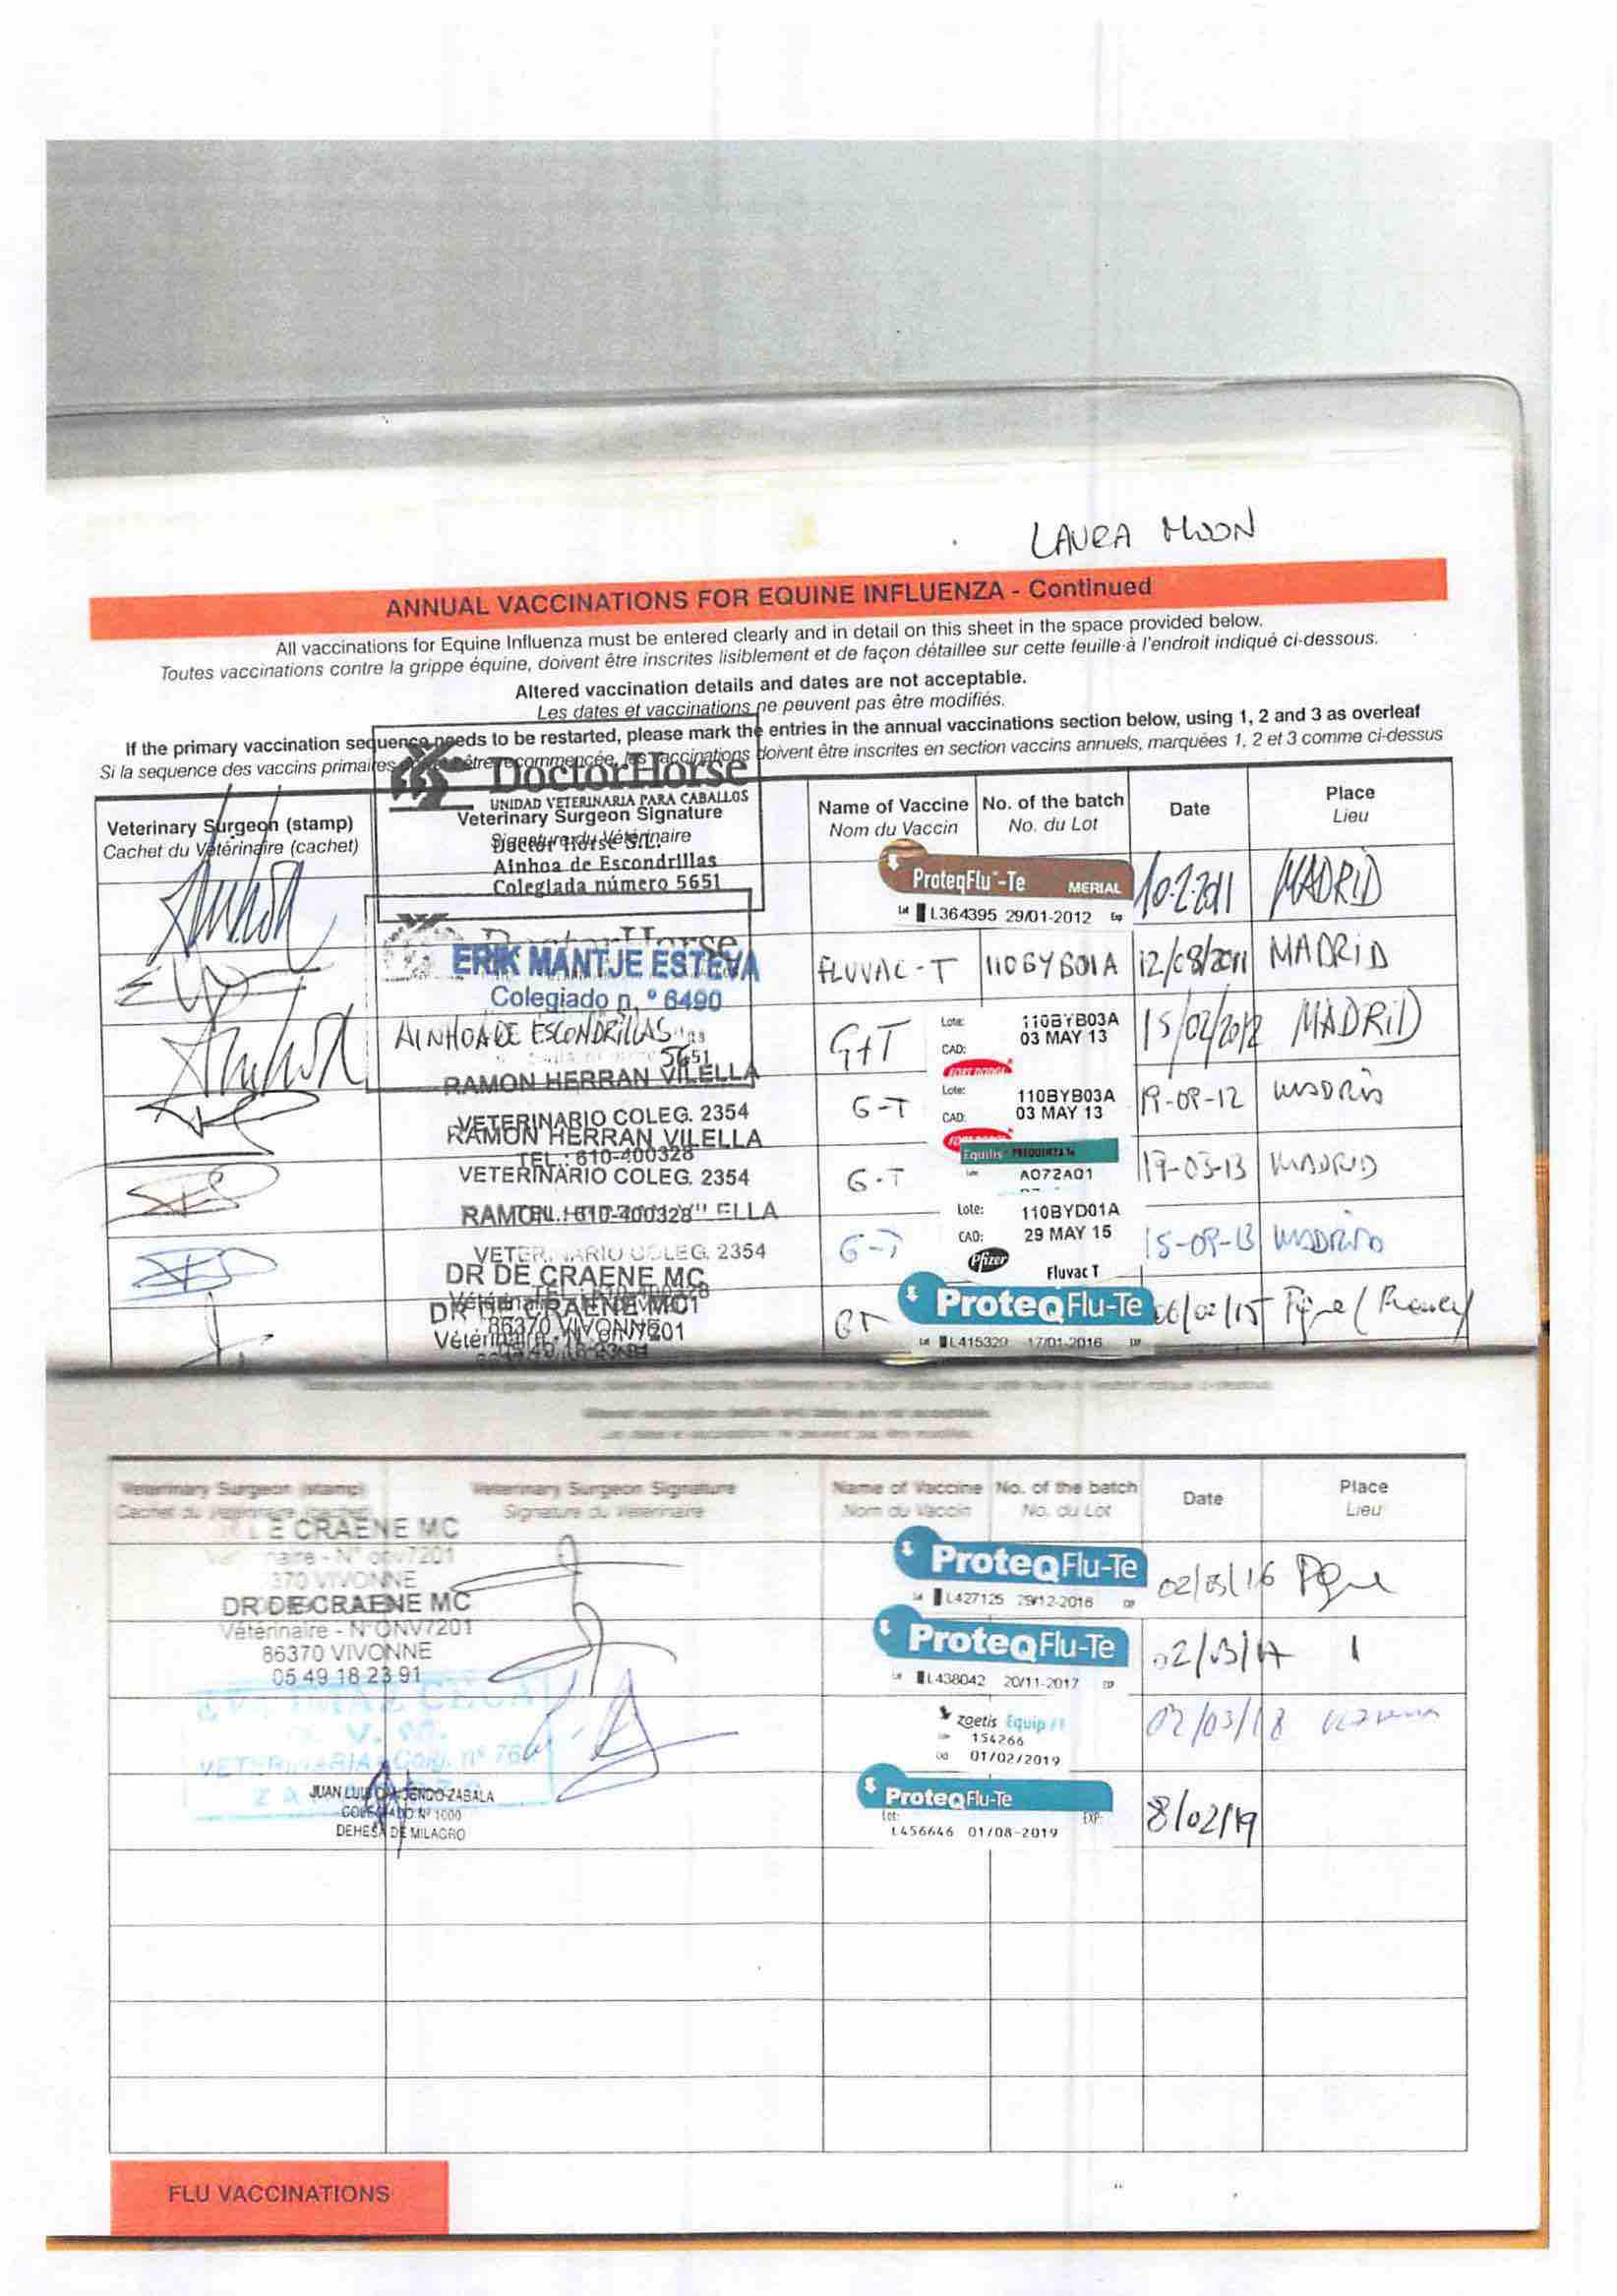 LAURA MOON
ANNUAL VACCINATIONS FOR EQUINE INFLUENZA - Continued
All vaccinations for Equine Influenza must be entered clearly and in detail on this sheet in the space provided below.
Toutes vaccinations contre la grippe équine, doivent être inscrites lisiblement et de façon détaillee sur cette feuille à l'endroit indiqué ci-dessous.
Altered vaccination details and dates are not acceptable.
Les dates et vaccinations ne peuvent pas être modifiés.
If the primary vaccination sequence needs to be restarted, please mark the entries in the annual vaccinations section below, using 1, 2 and 3 as overleaf
Si la sequence des vaccins primaires être recommencée, les vaccinations doivent être inscrites en section vaccins annuels, marquées 1, 2 et 3 comme ci-dessus
DoctorHorse
UNIDAD VETERINARIA PARA CABALLOS
Veterinary Surgeon (stamp) Veterinary Surgeon Signature Name of Vaccine No. of the batch Date Place
Cachet du Vétérinaire (cachet) Signature du Vétérinaire Nom du Vaccin No. du Lot Lieu
Doctor Horse S.L.
Ainhoa de Escondrillas
Colegiada número 5651
ProteqFlu-Te MERIAL 10-2-2011 MADRID
L364395 29/01-2012
DoctorHorse
ERIK MANTJE ESTEVA FLUVAC-T 110BYB01A 12/08/2011 MADRID
Colegiado n.º 6490
AINHOA DE ESCONDRILLAS G+T Lote: 110BYB03A 15/02/2012 MADRID
5651 CAD: 03 MAY 13
FORT DODGE
RAMON HERRAN VILELLA G-T Lote: 110BYB03A 19-09-12 MADRID
VETERINARIO COLEG. 2354 CAD: 03 MAY 13
TEL.: 610-400328
RAMON HERRAN VILELLA G-T Equilis PREQUENZA Te 19-03-13 MADRID
VETERINARIO COLEG. 2354 A072A01
TEL.: 610-400328
VETERINARIO COLEG. 2354 G-T Lote: 110BYD01A 15-09-13 MADRID
CAD: 29 MAY 15
Pfizer Fluvac T
DR DE CRAENE MC GT ProteqFlu-Te 06/02/15
86370 VIVONNE L415320 17/01-2016
DR DE CRAENE MC
Veterinary Surgeon (stamp) Veterinary Surgeon Signature Name of Vaccine No. of the batch Date Place
Cachet du Vétérinaire (cachet) Signature du Vétérinaire Nom du Vaccin No. du Lot Lieu
E CRAENE MC ProteqFlu-Te 02/03/16
370 VIVONNE L427125 29/12-2016
DR DE CRAENE MC ProteqFlu-Te 02/03/17
Vétérinaire - N°ONV7201 L438042 20/11-2017
86370 VIVONNE
05 49 18 23 91
zoetis Equip 02/03/18
154266
01/02/2019
VETERINARIA
ProteqFlu-Te 8/02/19
Lot: EXP:
L456646 01/08-2019
JUAN LUIS ZABALA
COLEGIADO Nº 1000
DEHESA DE MILAGRO
FLU VACCINATIONS